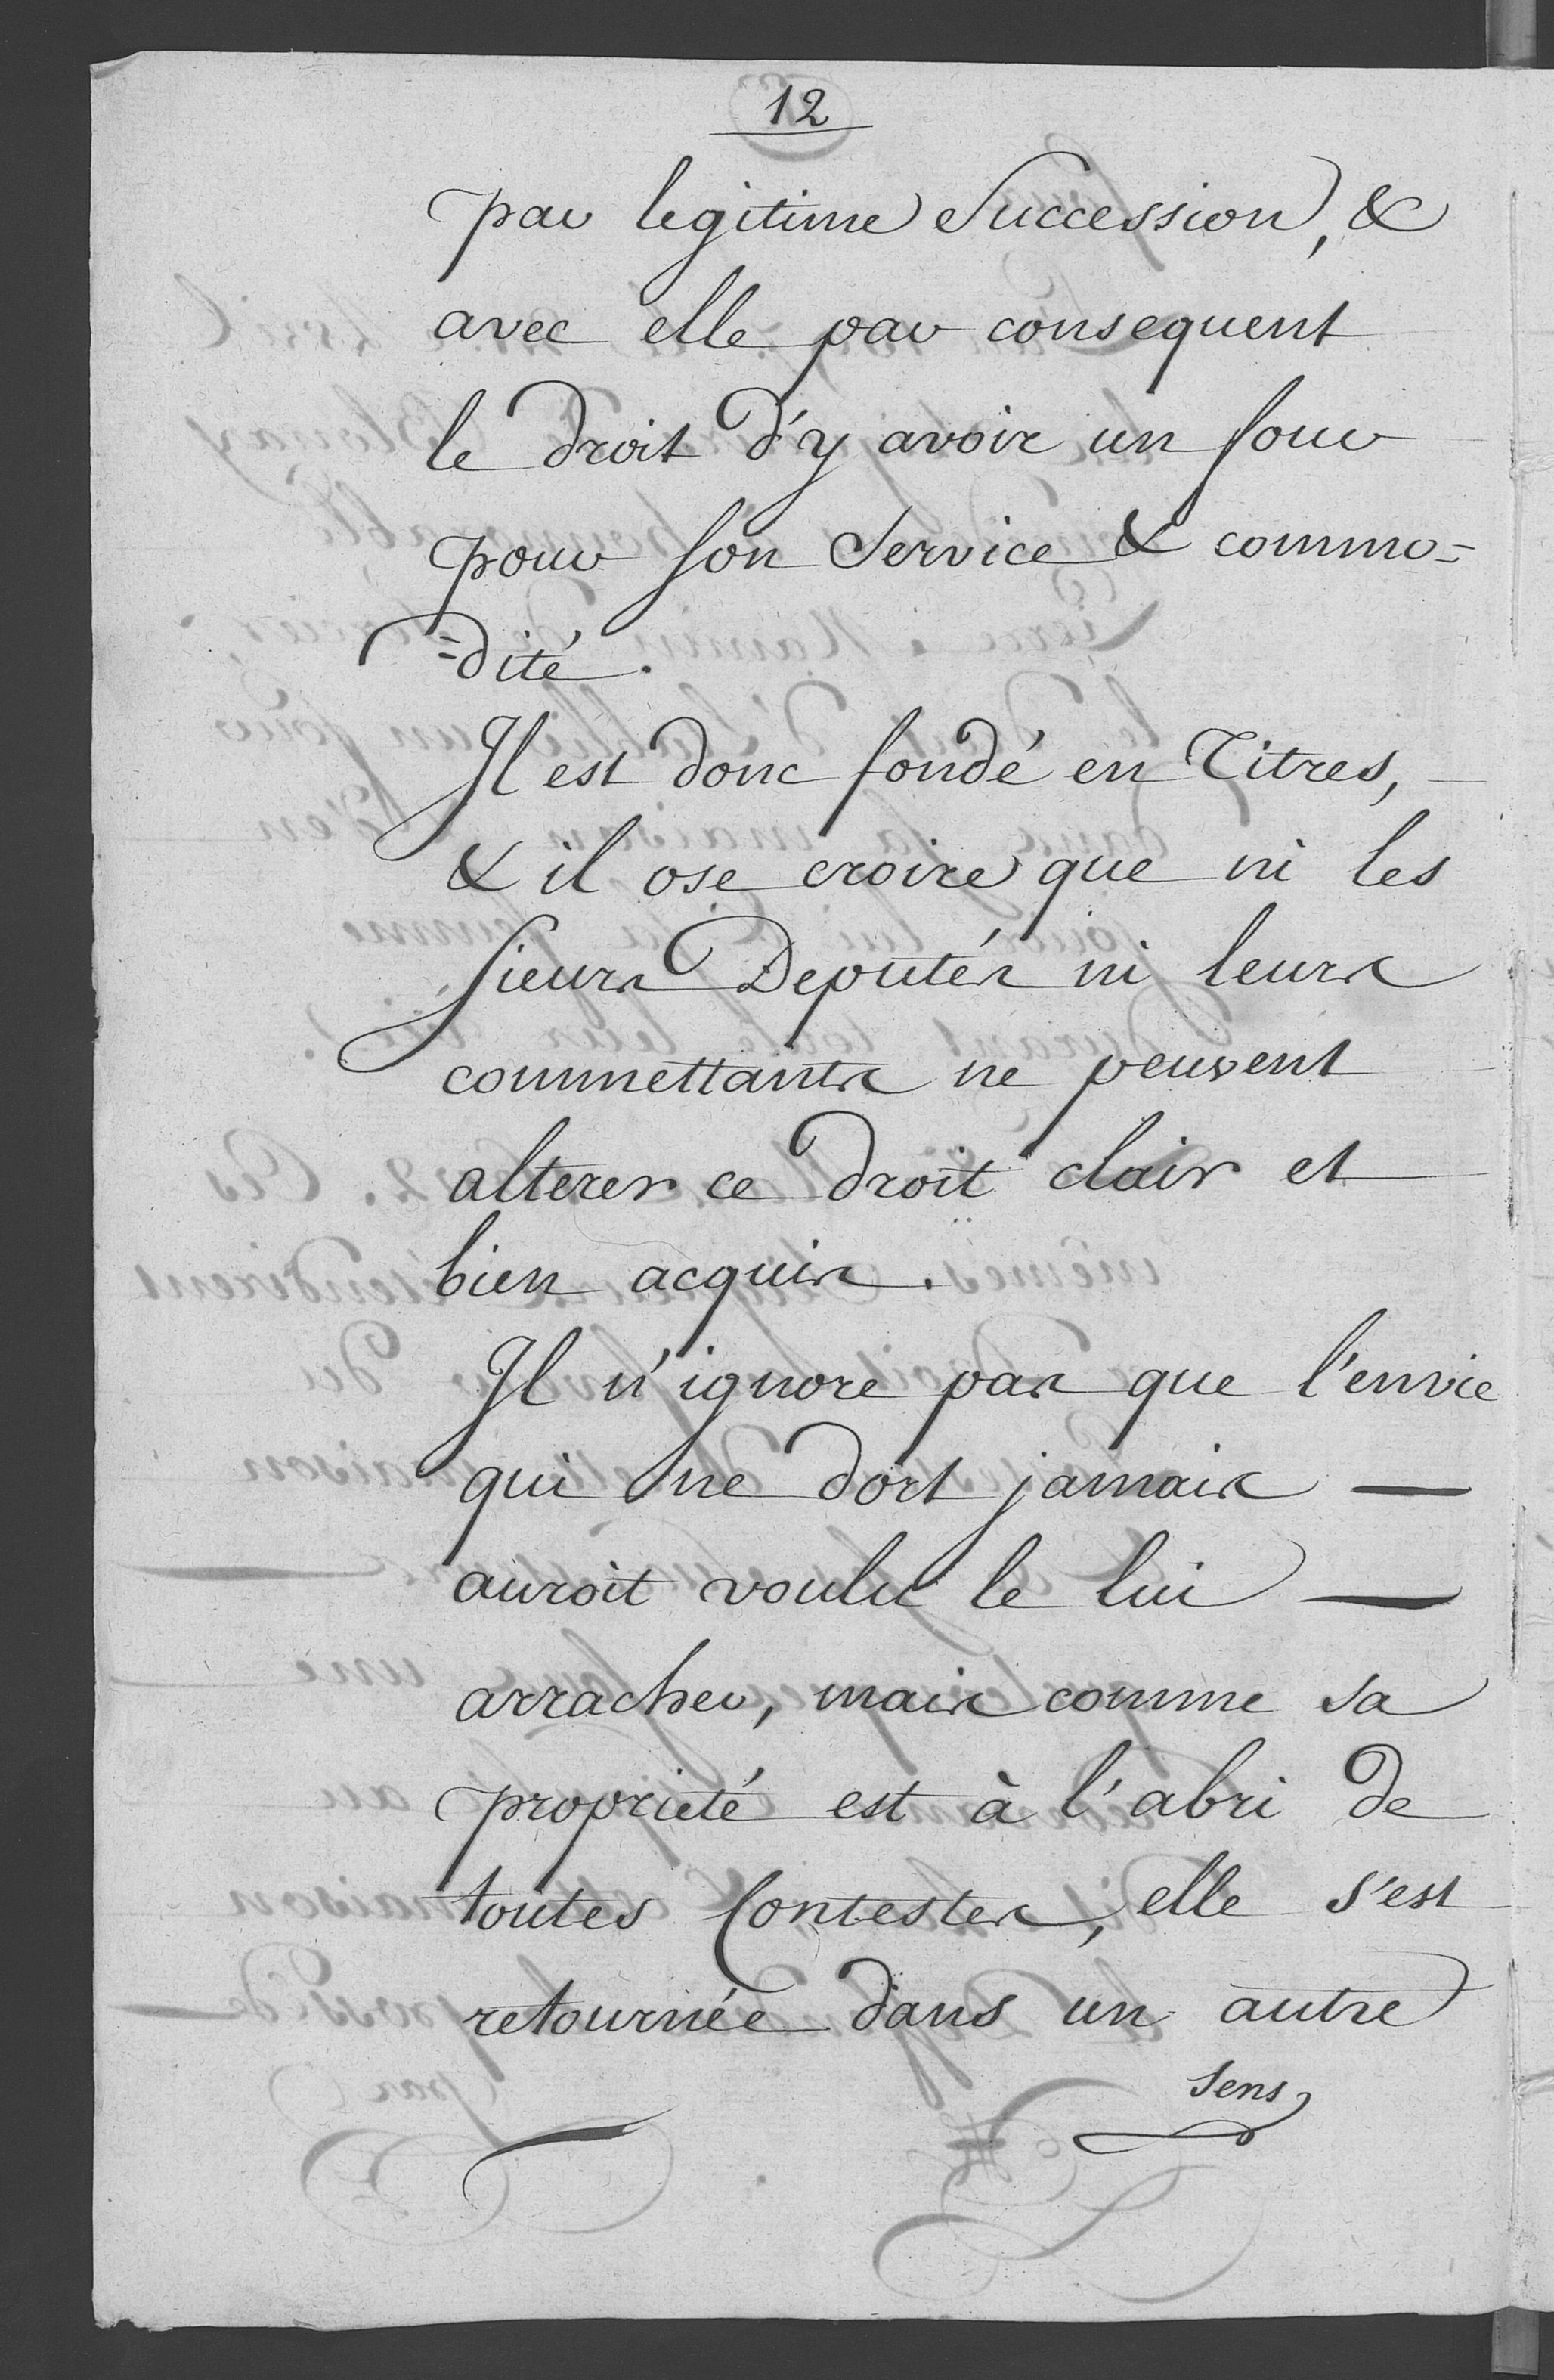 12
par legitime Succession, &
avec elle par consequent
le droit d'y avoir un four
pour son Service & commo=
=dité.
Il est donc fondé en Titres,
& il ose croire que ni les
sieurs Deputés ni leurs
commettants ne peuvent
alterer ce droit clair et
bien acquis.
Il n'ignore pas que l'envie
qui ne dort jamais —
auroit voulu le lui —
arracher, mais comme sa
proprieté est à l'abri de
toutes Contestes, elle s'est
retournée dans un autre
sens